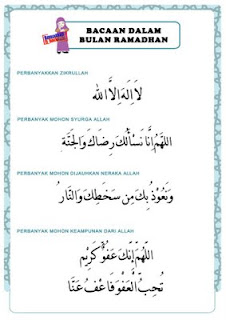 BACAAN DALAM
BULAN RAMADHAN
PERBANYAKKAN ZIKRULLAH
لاَ إِلَهَ إِلاَّ الله
PERBANYAK MOHON SYURGA ALLAH
اللَّهُمَّ إِنَّا نَسْأَلُكَ رِضَاكَ وَالْجَنَّةَ
PERBANYAK MOHON DIJAUHKAN NERAKA ALLAH
وَنَعُوْذُ بِكَ مِنْ سَخَطِكَ وَالنَّارُ
PERBANYAK MOHON KEAMPUNAN DARI ALLAH
اللَّهُمَّ إِنَّكَ عَفُوٌّ كَرِيْمٌ
تُحِبُّ الْعَفْوَ فَاعْفُ عَنَّا